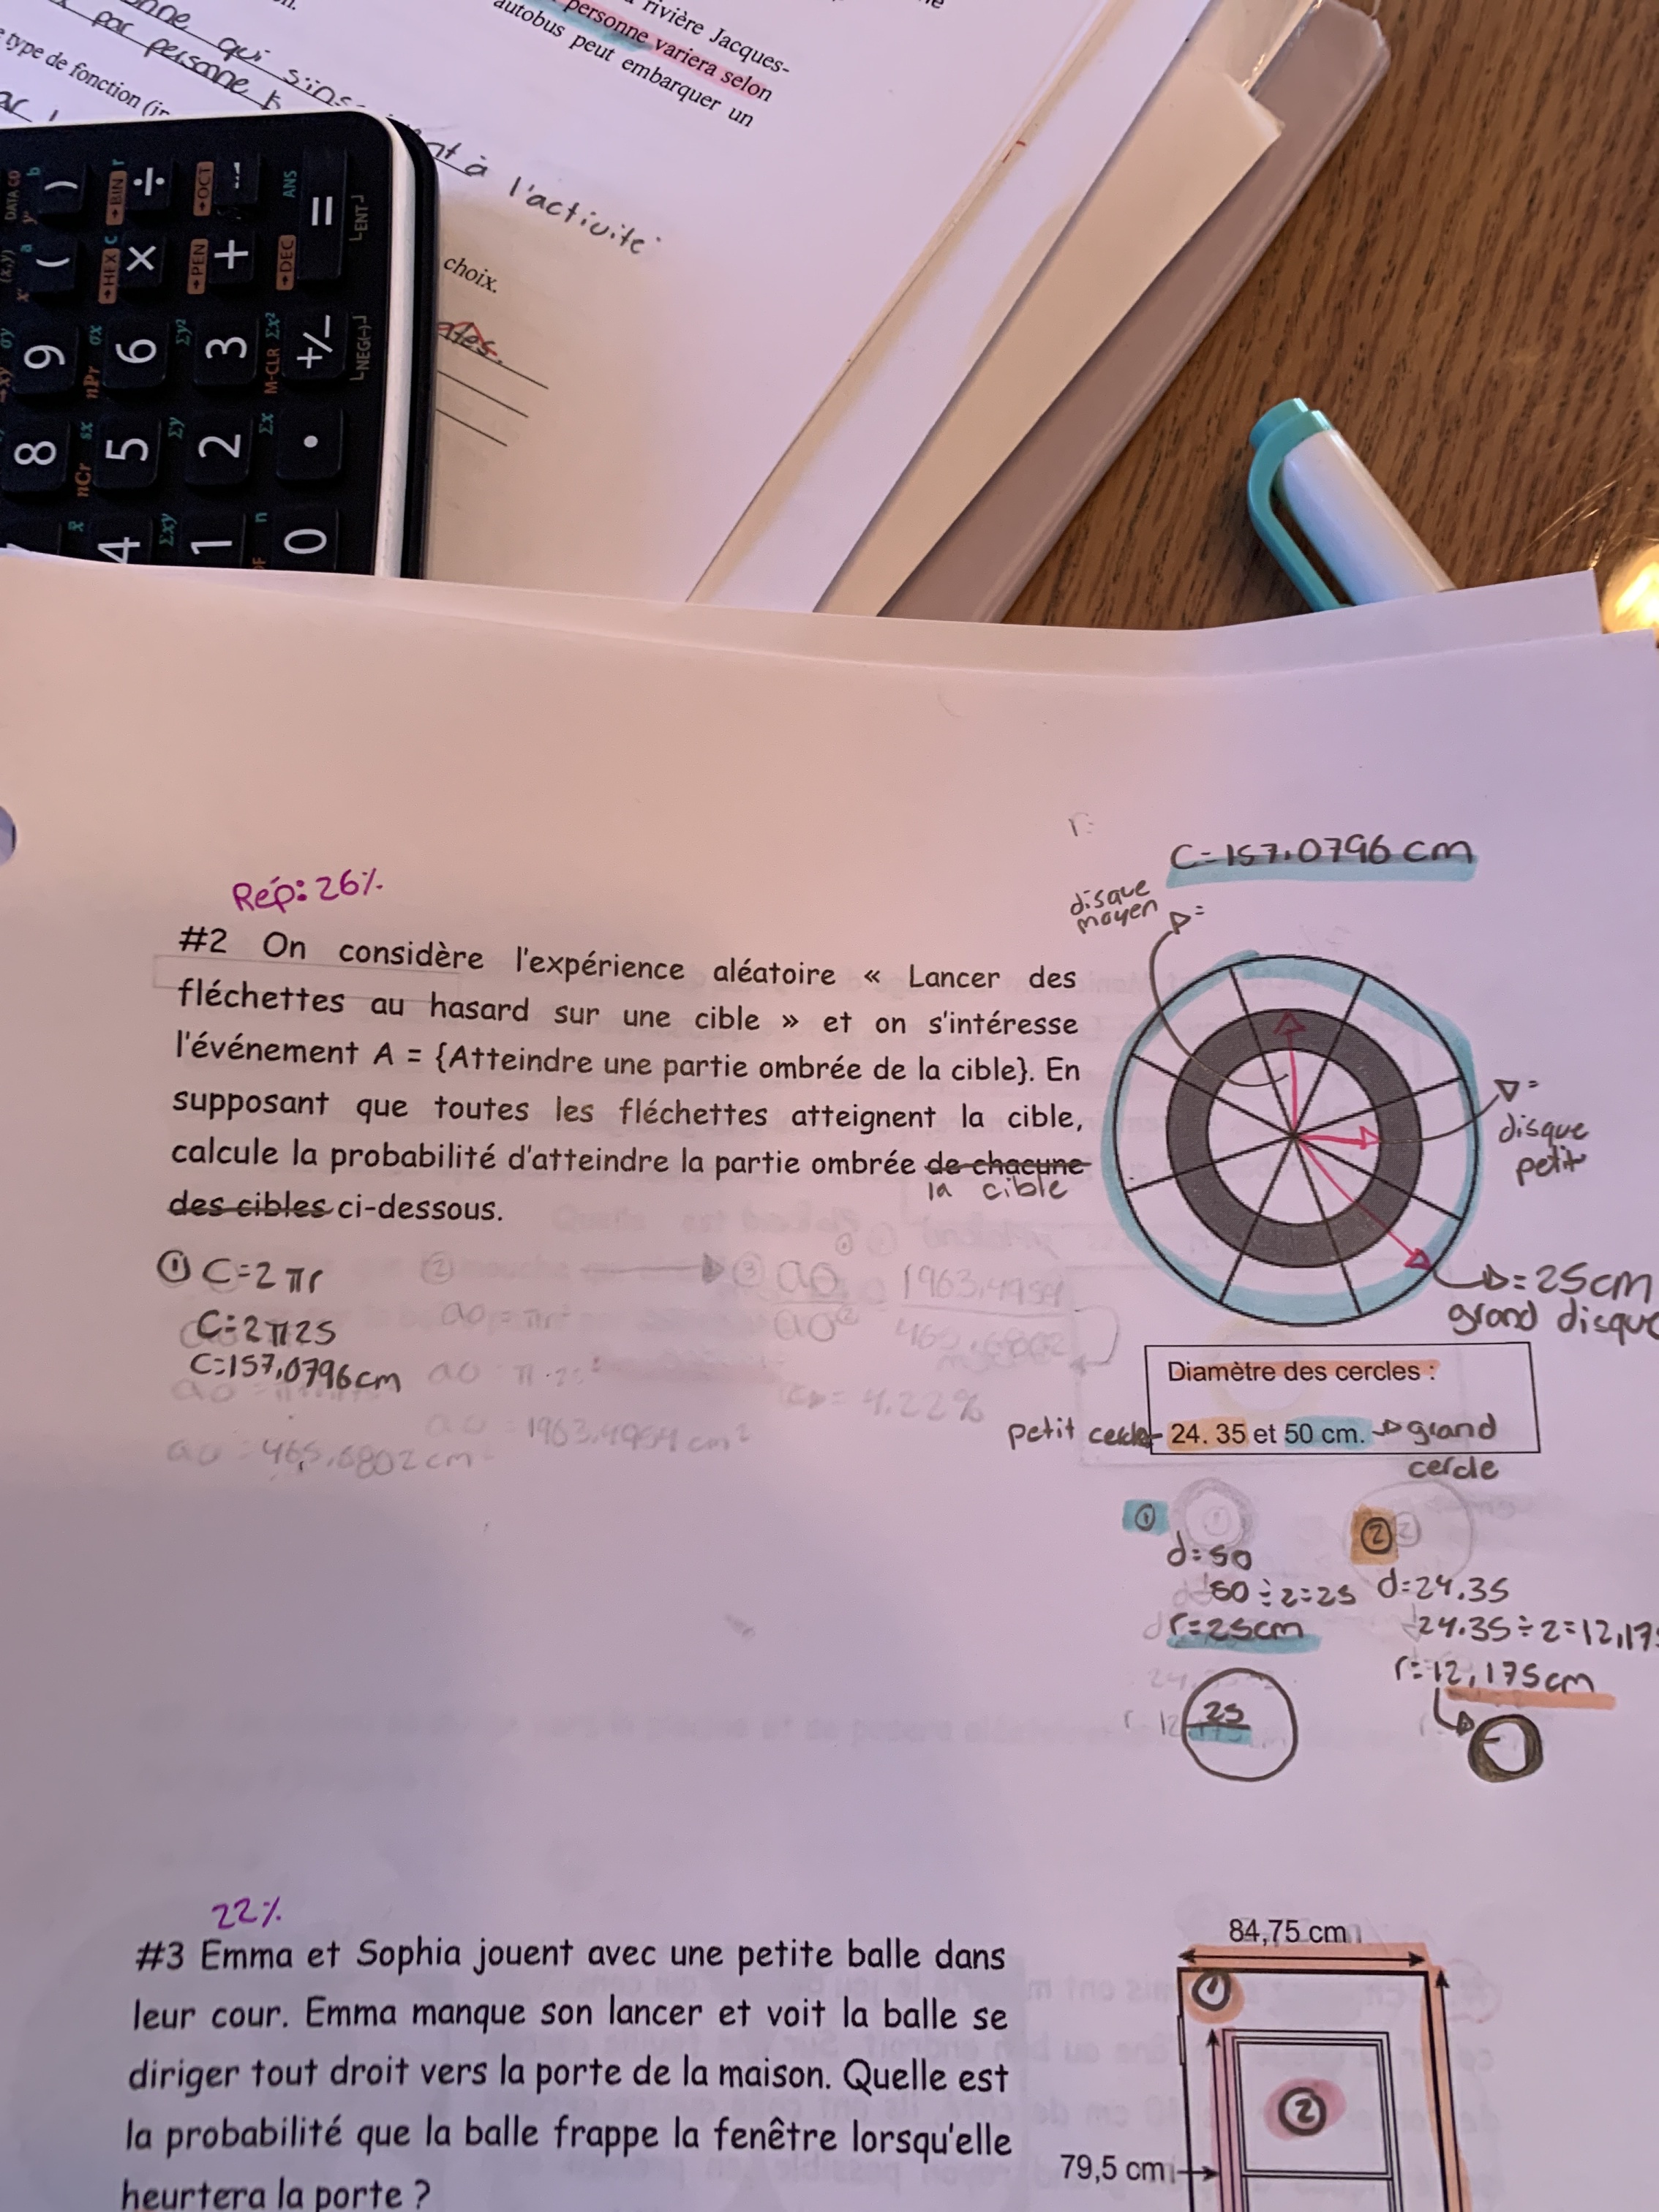 rivière Jacques-
personne variera selon
autobus peut embarquer un
qui s'ins
par personne
type de fonction (i
à l'activité
choix.
DATA CD
b
)
→BIN
r
÷
→OCT
ANS
=
ENT
(x,y)
a
(
→HEX
C
×
→PEN
+
→DEC
9
nPr
σx
6
Σy²
3
M-CLR
Σx²
+/-
NEG(-)
8
nCr
sx
5
Σy
2
Σx
.
x̄
4
Σxy
1
n
0
r=
C=157,0796 cm
Rép: 26%
disque
moyen
#2 On considère l'expérience aléatoire « Lancer des
fléchettes au hasard sur une cible » et on s'intéresse
l'événement A = {Atteindre une partie ombrée de la cible}. En
supposant que toutes les fléchettes atteignent la cible,
calcule la probabilité d'atteindre la partie ombrée de chacune
la cible
des cibles ci-dessous.
disque
petit
=25cm
grand disque
① C=2πr
C=2π25
C=157,0796cm
②
ao=πr²
ao π·25²
ao=1963,4954cm²
③
1963,4954
465,6802
= 4,22%
ao=465,6802cm²
Diamètre des cercles :
petit cercle 24. 35 et 50 cm. grand
cercle
①
d=50
50÷2=25
r=25cm
25
②
d=24.35
24.35÷2=12,175
r=12,175cm
22%
#3 Emma et Sophia jouent avec une petite balle dans
leur cour. Emma manque son lancer et voit la balle se
diriger tout droit vers la porte de la maison. Quelle est
la probabilité que la balle frappe la fenêtre lorsqu'elle
heurtera la porte ?
84,75 cm
①
②
79,5 cm